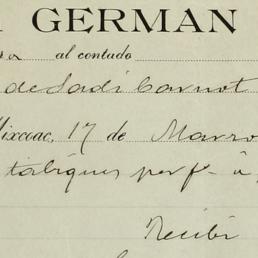 GERMAN
al contado
de Sadi Carnot
Mixcoac, 17 de Marzo
tabiques perf. á
Recibí